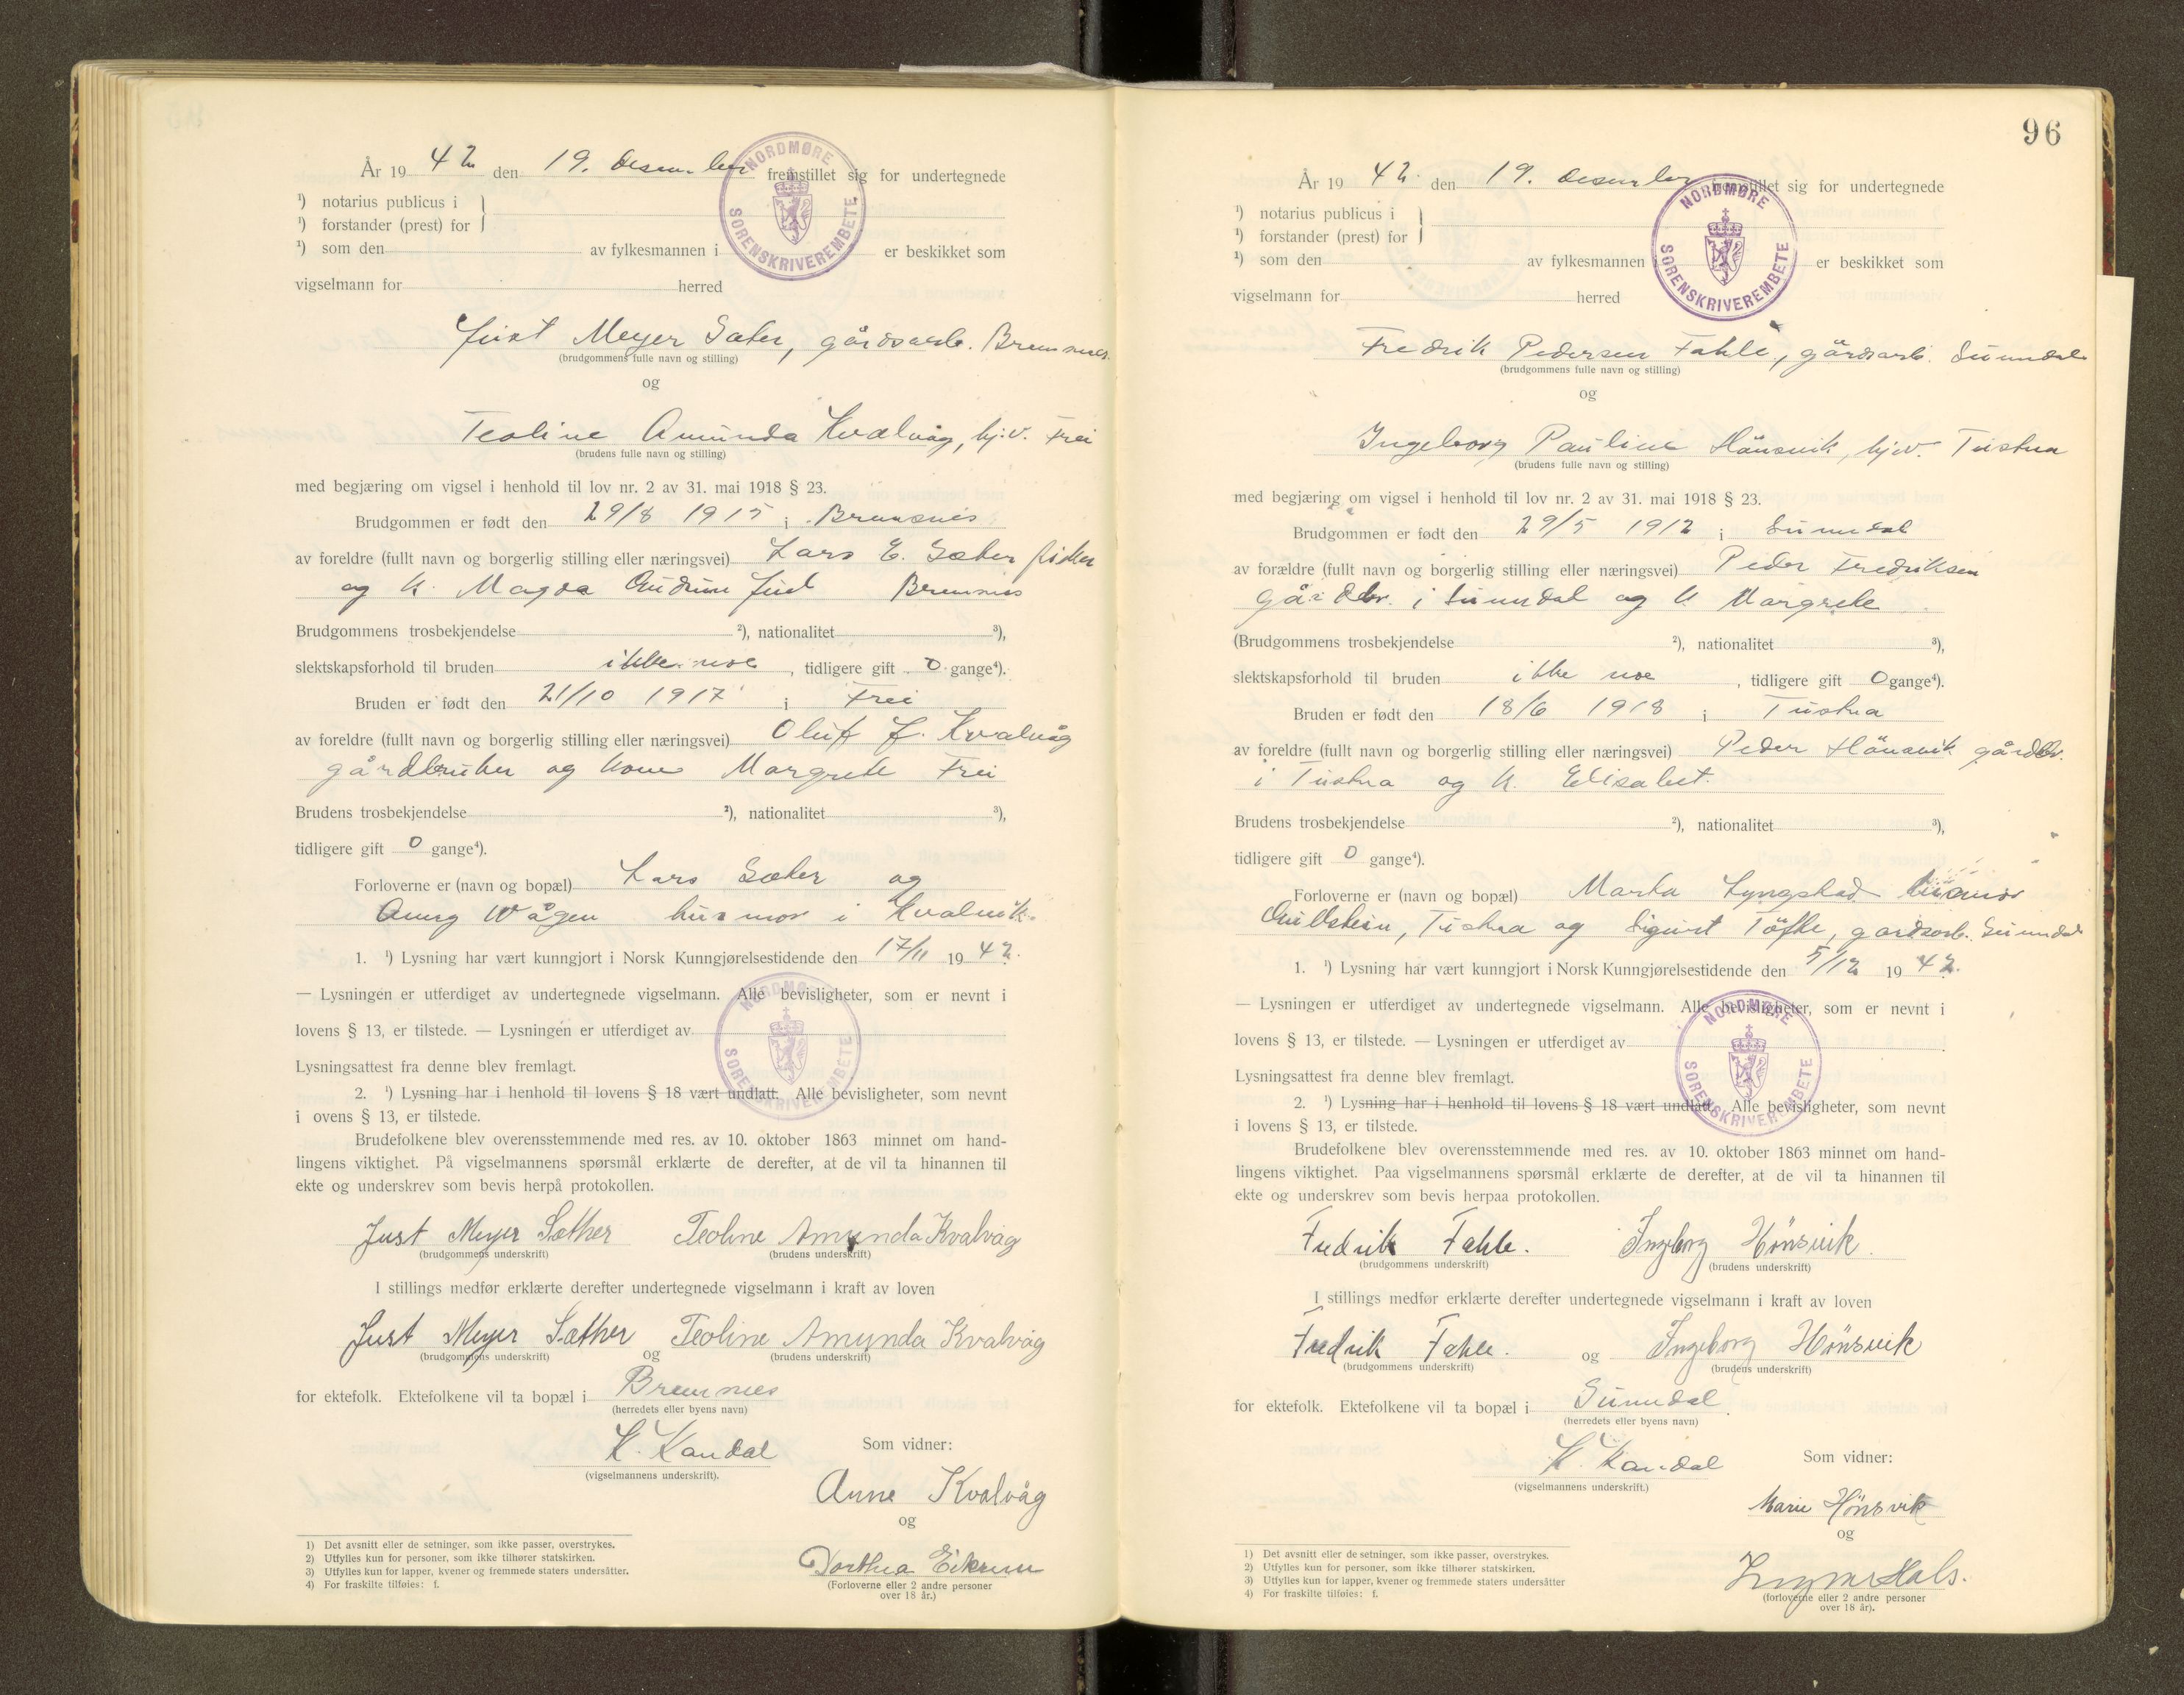 År 19 42 den 19. desember fremstillet sig for undertegnede
¹) notarius publicus i
¹) forstander (prest) for
¹) som den av fylkesmannen i er beskikket som
vigselmann for herred
NORDMØRE SORENSKRIVEREMBETE
Just Meyer Sæter, gårdsarb. Bremsnes
(brudgommens fulle navn og stilling)
og
Teoline Amunda Kvalvåg, hj.v. Frei
(brudens fulle navn og stilling)
med begjæring om vigsel i henhold til lov nr. 2 av 31. mai 1918 § 23.
Brudgommen er født den 29/8 1915 i Bremsnes
av foreldre (fullt navn og borgerlig stilling eller næringsvei) Lars E. Sæter fisker
og k. Magda Gudrun Juul Bremsnes
Brudgommens trosbekjendelse ²), nationalitet ³),
slektskapsforhold til bruden ikke noe, tidligere gift 0 gange⁴).
Bruden er født den 21/10 1917 i Frei
av foreldre (fullt navn og borgerlig stilling eller næringsvei) Oluf J. Kvalvåg
gårdbruker og kone Margrete Frei
Brudens trosbekjendelse ²), nationalitet ³),
tidligere gift 0 gange⁴).
Forloverne er (navn og bopæl) Lars Sæter og
Vågen husmor i Kvalvik.
1. ¹) Lysning har vært kunngjort i Norsk Kunngjørelsestidende den 17/11 19 42.
— Lysningen er utferdiget av undertegnede vigselmann. Alle bevisligheter, som er nevnt i
lovens § 13, er tilstede. — Lysningen er utferdiget av
Lysningsattest fra denne blev fremlagt.
NORDMØRE SORENSKRIVEREMBETE
2. ¹) Lysning har i henhold til lovens § 18 vært undlatt. Alle bevisligheter, som nevnt
i ovens § 13, er tilstede.
Brudefolkene blev overensstemmende med res. av 10. oktober 1863 minnet om hand-
lingens viktighet. På vigselmannens spørsmål erklærte de derefter, at de vil ta hinannen til
ekte og underskrev som bevis herpå protokollen.
Just Meyer Sæther Teoline Amunda Kvalvåg
(brudgommens underskrift) (brudens underskrift)
I stillings medfør erklærte derefter undertegnede vigselmann i kraft av loven
Just Meyer Sæther og Teoline Amunda Kvalvåg
(brudgommens underskrift) (brudens underskrift)
for ektefolk. Ektefolkene vil ta bopæl i Bremsnes
(herredets eller byens navn)
K. Kandal
(vigselmannens underskrift).
Som vidner:
Anne Kvalvåg
og
Dorthea Eikrem
(Forloverne eller 2 andre personer
over 18 år.)
1) Det avsnitt eller de setninger, som ikke passer, overstrykes.
2) Utfylles kun for personer, som ikke tilhører statskirken.
3) Utfylles kun for lapper, kvener og fremmede staters undersåtter.
4) For fraskilte tilføies: f.
96
År 19 42. den 19. desember fremstillet sig for undertegnede
¹) notarius publicus i
¹) forstander (prest) for
¹) som den av fylkesmannen i er beskikket som
vigselmann for herred
NORDMØRE SORENSKRIVEREMBETE
Fredrik Pedersen Fahle, gårdsarb. Sunndal
(brudgommens fulle navn og stilling)
og
Ingeborg Pauline Hönsvik, hj.v. Tustna
(brudens fulle navn og stilling)
med begjæring om vigsel i henhold til lov nr. 2 av 31. mai 1918 § 23.
Brudgommen er født den 29/5 1912 i Sunndal
av forældre (fullt navn og borgerlig stilling eller næringsvei) Peder Fredriksen
gårdbr. i Sunndal og k. Margrete
(Brudgommens trosbekjendelse ²), nationalitet ³),
slektskapsforhold til bruden ikke noe, tidligere gift 0 gange⁴).
Bruden er født den 18/6 1918 i Tustna
av foreldre (fullt navn og borgerlig stilling eller næringsvei) Peder Hönsvik gårdbr.
i Tustna og k. Elisabet.
Brudens trosbekjendelse ²), nationalitet ³),
tidligere gift 0 gange⁴).
Forloverne er (navn og bopæl) Marta Lyngstad husmor
Gullstein, Tustna og Sigurt Töfte, gardsarb. Sunndal
1. ¹) Lysning har vært kunngjort i Norsk Kunngjørelsestidende den 5/12 19 42.
— Lysningen er utferdiget av undertegnede vigselmann. Alle bevisligheter, som er nevnt i
lovens § 13, er tilstede. — Lysningen er utferdiget av
Lysningsattest fra denne blev fremlagt.
NORDMØRE SORENSKRIVEREMBETE
2. ¹) Lysning har i henhold til lovens § 18 vært undlatt. Alle bevisligheter, som nevnt
i lovens § 13, er tilstede.
Brudefolkene blev overensstemmende med res. av 10. oktober 1863 minnet om hand-
lingens viktighet. Paa vigselmannens spørsmål erklærte de derefter, at de vil ta hinannen til
ekte og underskrev som bevis herpaa protokollen.
Fredrik Fahle. Ingeborg Hønsvik.
(brudgommens underskrift) (brudens underskrift)
I stillings medfør erklærte derefter undertegnede vigselmann i kraft av loven
Fredrik Fahle. og Ingeborg Hønsvik
(brudgommens underskrift) (brudens underskrift)
for ektefolk. Ektefolkene vil ta bopæl i Sunndal
(herredets eller byens navn)
K. Kandal
(vigselmannens underskrift.)
Som vidner:
Marie Hønsvik
og
Hals.
(forloverne eller 2 andre personer
over 18 år).
1) Det avsnitt eller de setninger, som ikke passer, overstrykes.
2) Utfylles kun for personer, som ikke tilhører statskirken.
3) Utfylles kun for lapper, kvener og fremmede staters undersåtter
4) For fraskilte tilføies: f.